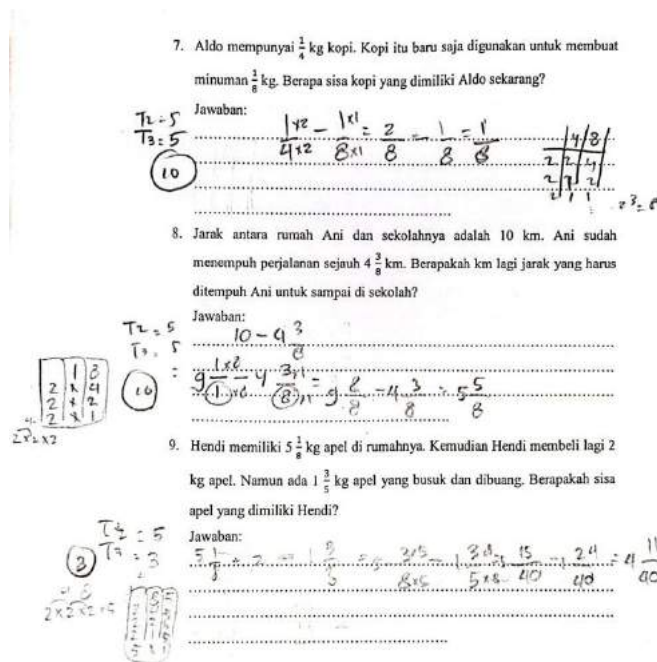 7. Aldo mempunyai 1/4 kg kopi. Kopi itu baru saja digunakan untuk membuat
minuman 1/8 kg. Berapa sisa kopi yang dimiliki Aldo sekarang?
Jawaban:
T2 = 5
T3 = 5
10
1×2/4×2 - 1×1/8×1 = 2/8 - 1/8 = 1/8
4 8
2 2 4
2 1 2
2 1 1
2³ = 8
8. Jarak antara rumah Ani dan sekolahnya adalah 10 km. Ani sudah
menempuh perjalanan sejauh 4 3/8 km. Berapakah km lagi jarak yang harus
ditempuh Ani untuk sampai di sekolah?
Jawaban:
T2 = 5
T3 = 5
10
10 - 4 3/8
= 9 1×8/1×8 - 4 3×1/8×1 = 9 8/8 - 4 3/8 = 5 5/8
1 8
2 × 4
2 × 2
2 × 1
2×2×2
9. Hendi memiliki 5 1/8 kg apel di rumahnya. Kemudian Hendi membeli lagi 2
kg apel. Namun ada 1 3/5 kg apel yang busuk dan dibuang. Berapakah sisa
apel yang dimiliki Hendi?
Jawaban:
= 5
= 3
5 1/8 + 2 3×5/8×5 - 1 3×8/5×8 15/40 - 1 24/40 = 4 11/40
2×2×2×5